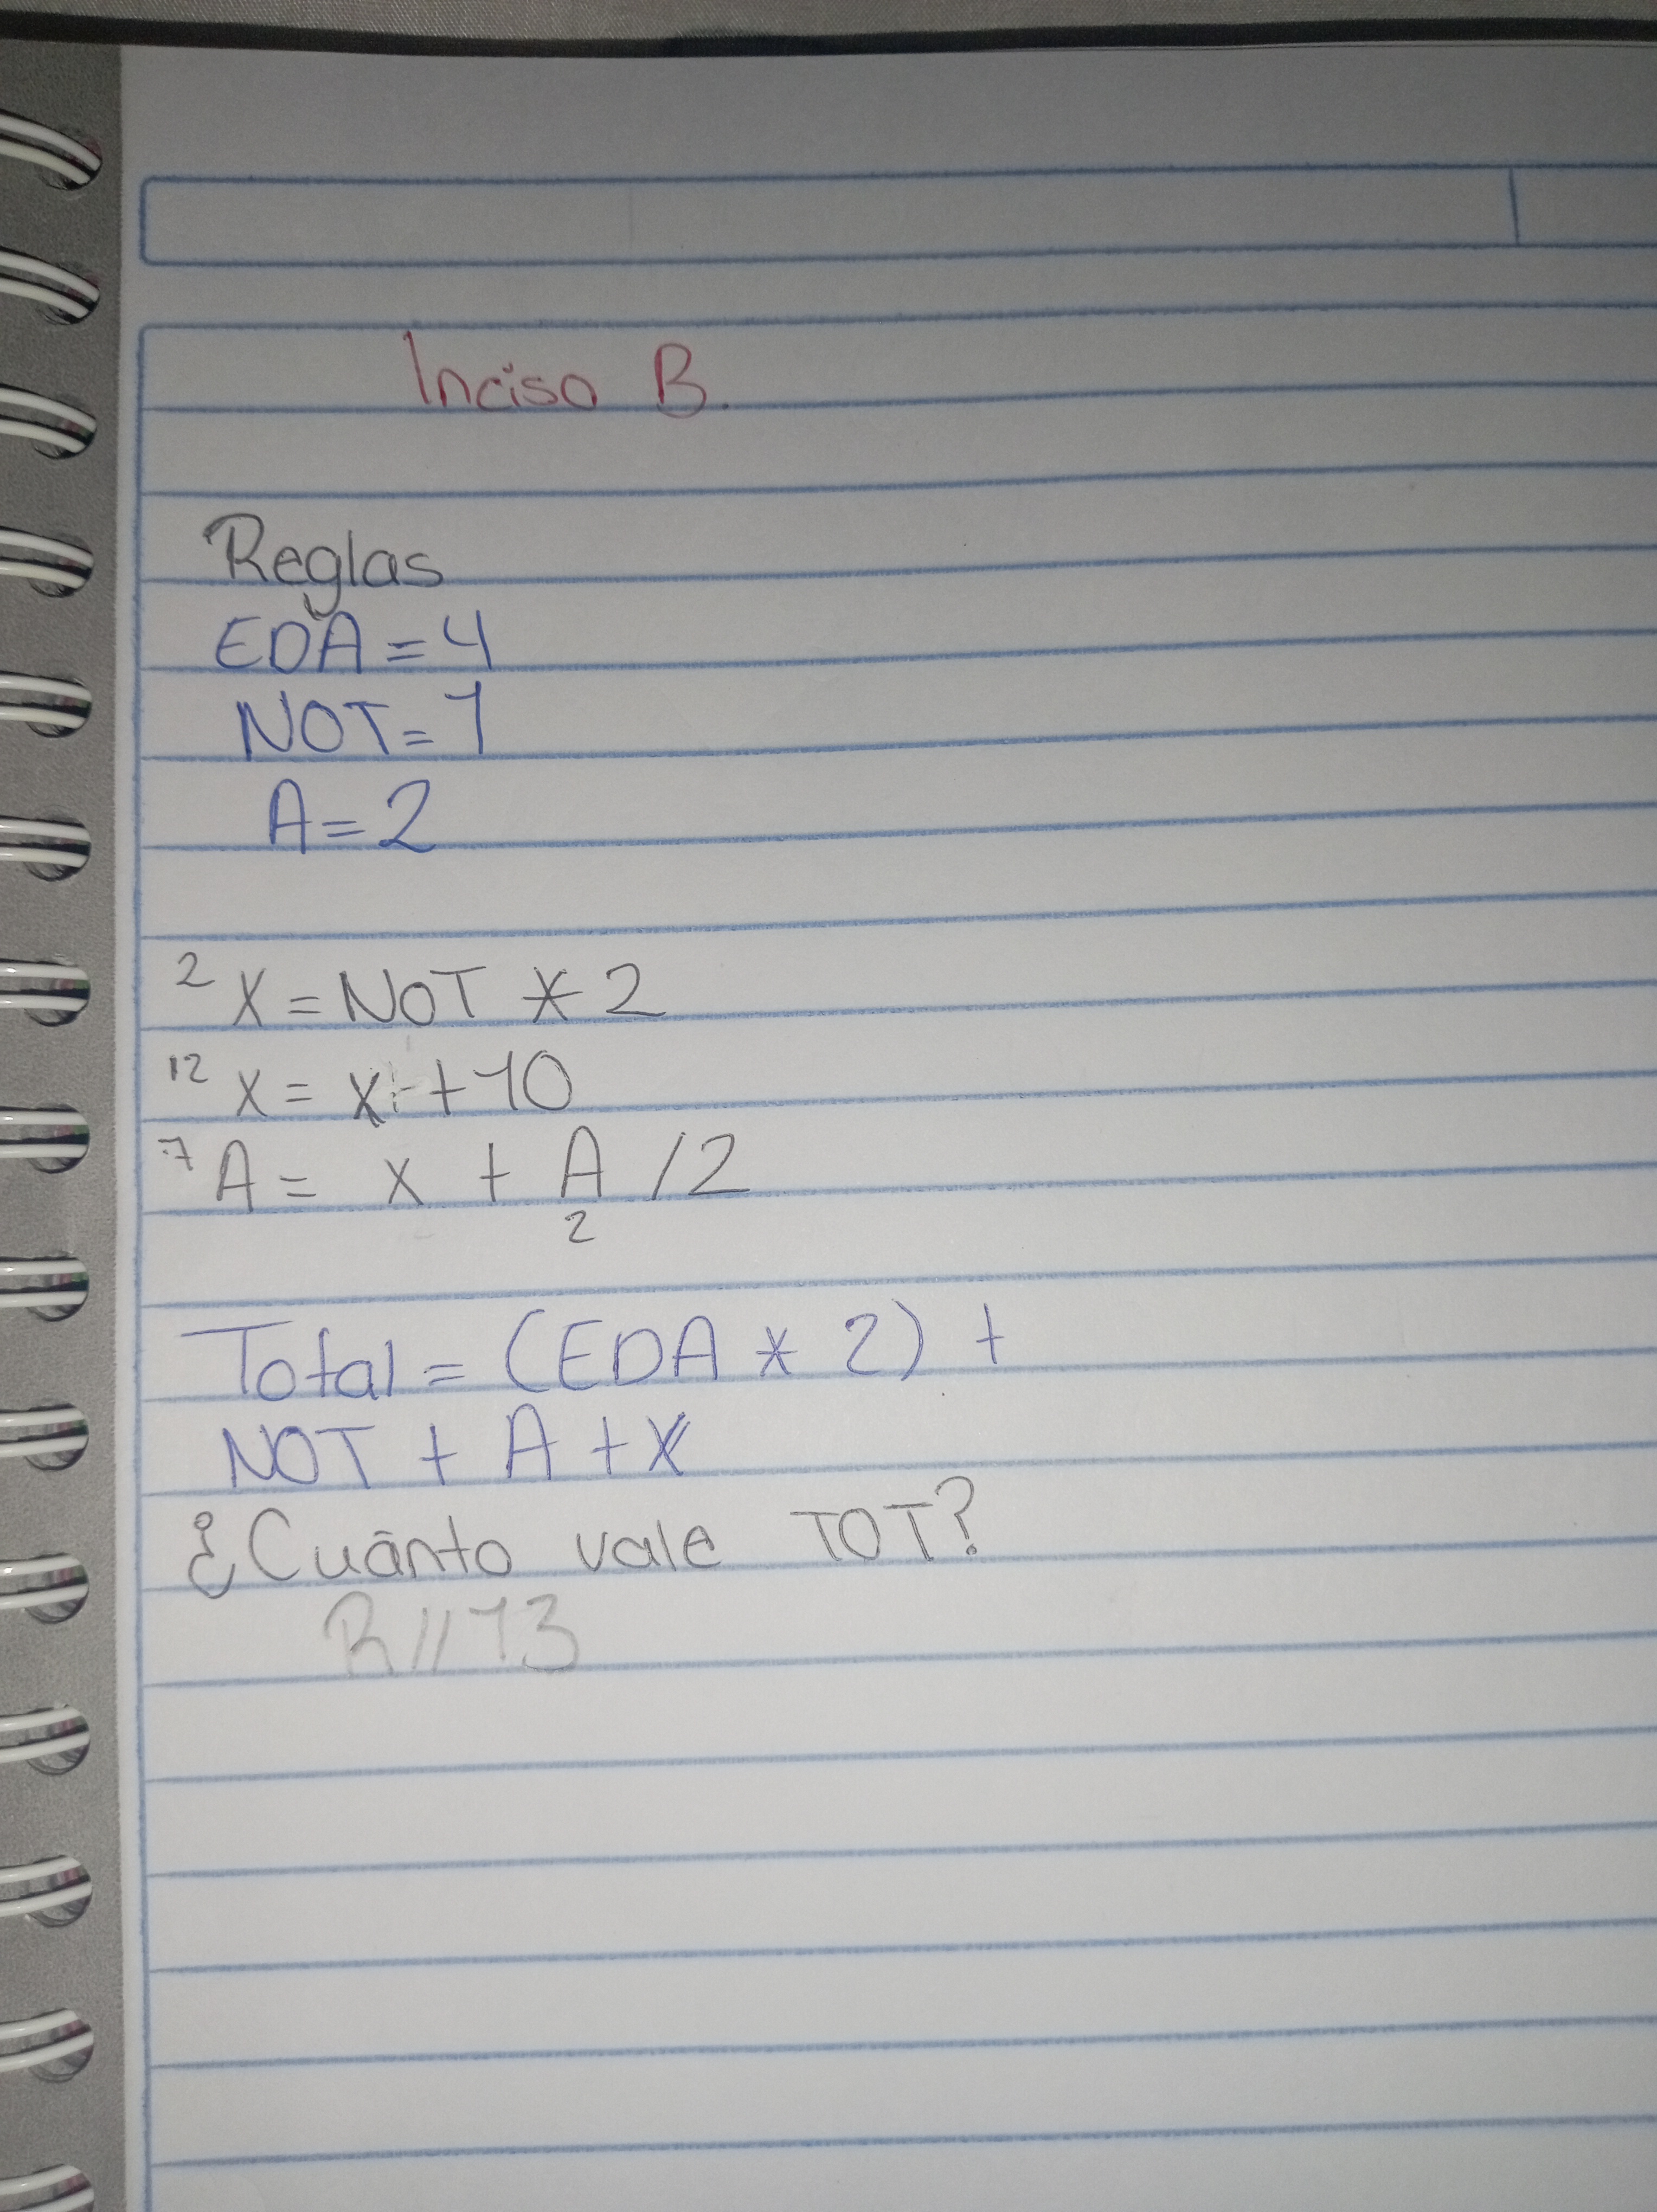 Inciso B.
Reglas
EDA = 4
NOT = 1
A = 2
2 X = NOT * 2
12 X = X + 10
7 A = X + A / 2
2
Total = (EDA * 2) +
NOT + A + X
¿Cuánto vale TOT?
R// 13